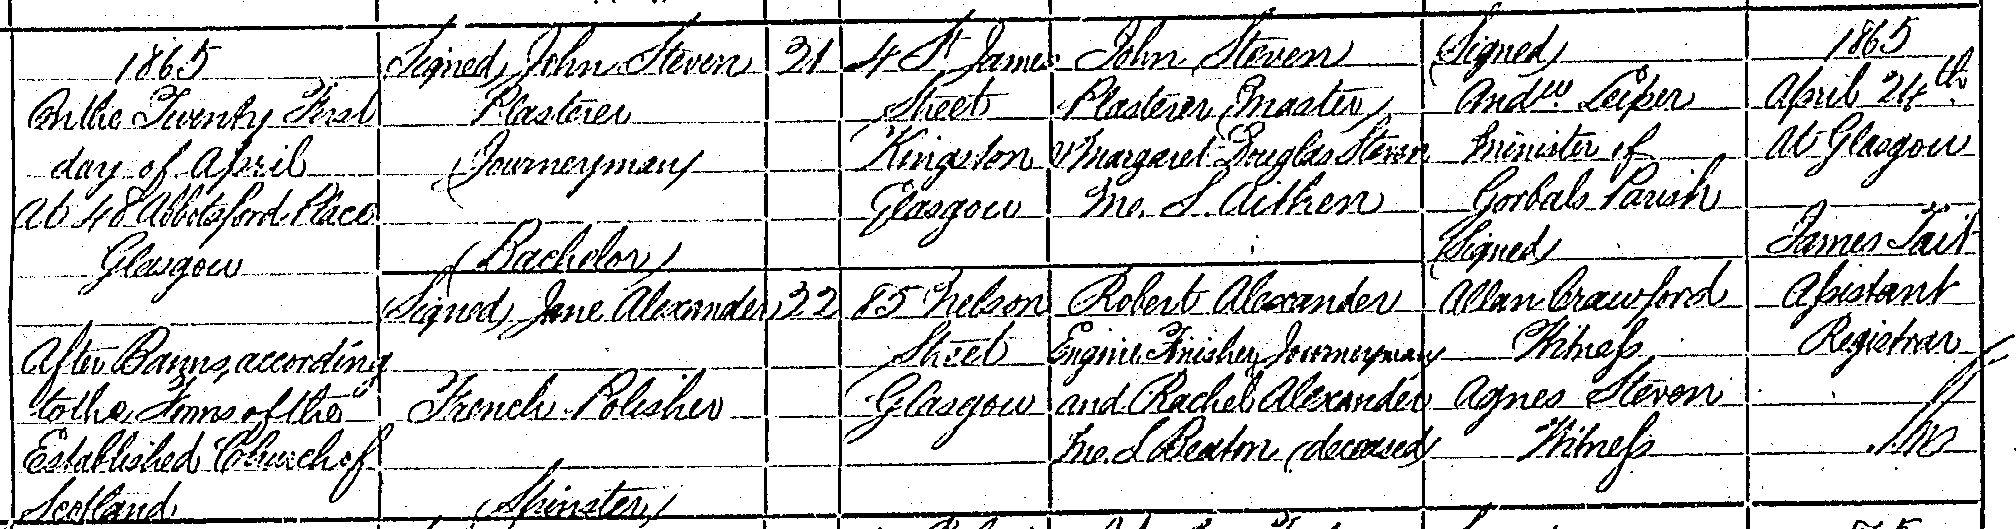 1865
On the Twenty First
day of April
At 48 Abbotsford Place
Glasgow
After Banns, according
to the Forms of the
Established Church of
Scotland
(Signed) John Steven
Plasterer
(Journeyman)
(Bachelor)
(Signed) Jane Alexander
French Polisher
(Spinster)
21
22
4 St James
Street
Kingston
Glasgow
85 Nelson
Street
Glasgow
John Steven
Plasterer (Master)
& Margaret Douglas Steven
M.S. Aitken
Robert Alexander
Engine Finisher, Journeyman
and Rachel Alexander
M.S. Beaton (deceased)
(Signed)
Andw. Leiper
Minister of
Gorbals Parish
(Signed)
Allan Crawford
Witness
Agnes Steven
Witness
1865
April 24th
At Glasgow
James Tait
Assistant
Registrar